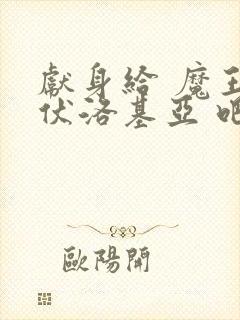 獻身給 魔王
伏洛基亞 吧
歐陽開